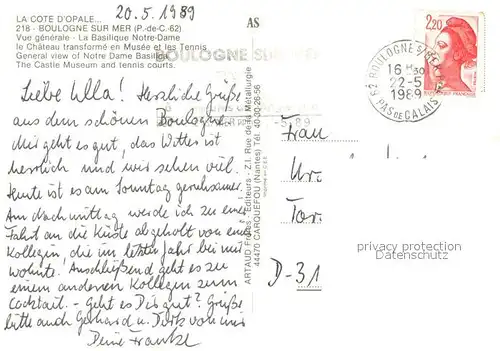 20.5.1989
LA COTE D'OPALE...
218 - BOULOGNE SUR MER (P.-de-C.-62)
Vue générale - La Basilique Notre-Dame
le Château transformé en Musée et les Tennis
General view of Notre Dame Basilic
The Castle Museum and tennis courts.
AS
BOULOGNE SUR
Liebe Ulla! Herzliche Grüße
aus dem schönen Boulogne.
Mir geht es gut, das Wetter ist
herrlich und wir sehen viel.
Heute ist es am Sonntag geruhsamer.
Am Nachmittag werde ich zu einer
Fahrt an die Küste abgeholt von einer
Kollegin, die im letzten Jahr bei mir
wohnte. Anschließend geht es zu
einem anderen Kollegen zum
Cocktail. - Geht es Dir gut? Grüße
bitte auch Gerhard u. Dirk von mir
Deine Frauke
ARTAUD Frères - Editeurs - Z.I. Rue de la Métallurgie
44470 CARQUEFOU (Nantes) Tél. 40-30-26-56
5.89
62 BOULOGNE S/MER
16 H 30
22-5
1989
PAS DE CALAIS
2,20
Frau
D-31
privacy protection
Datenschutz